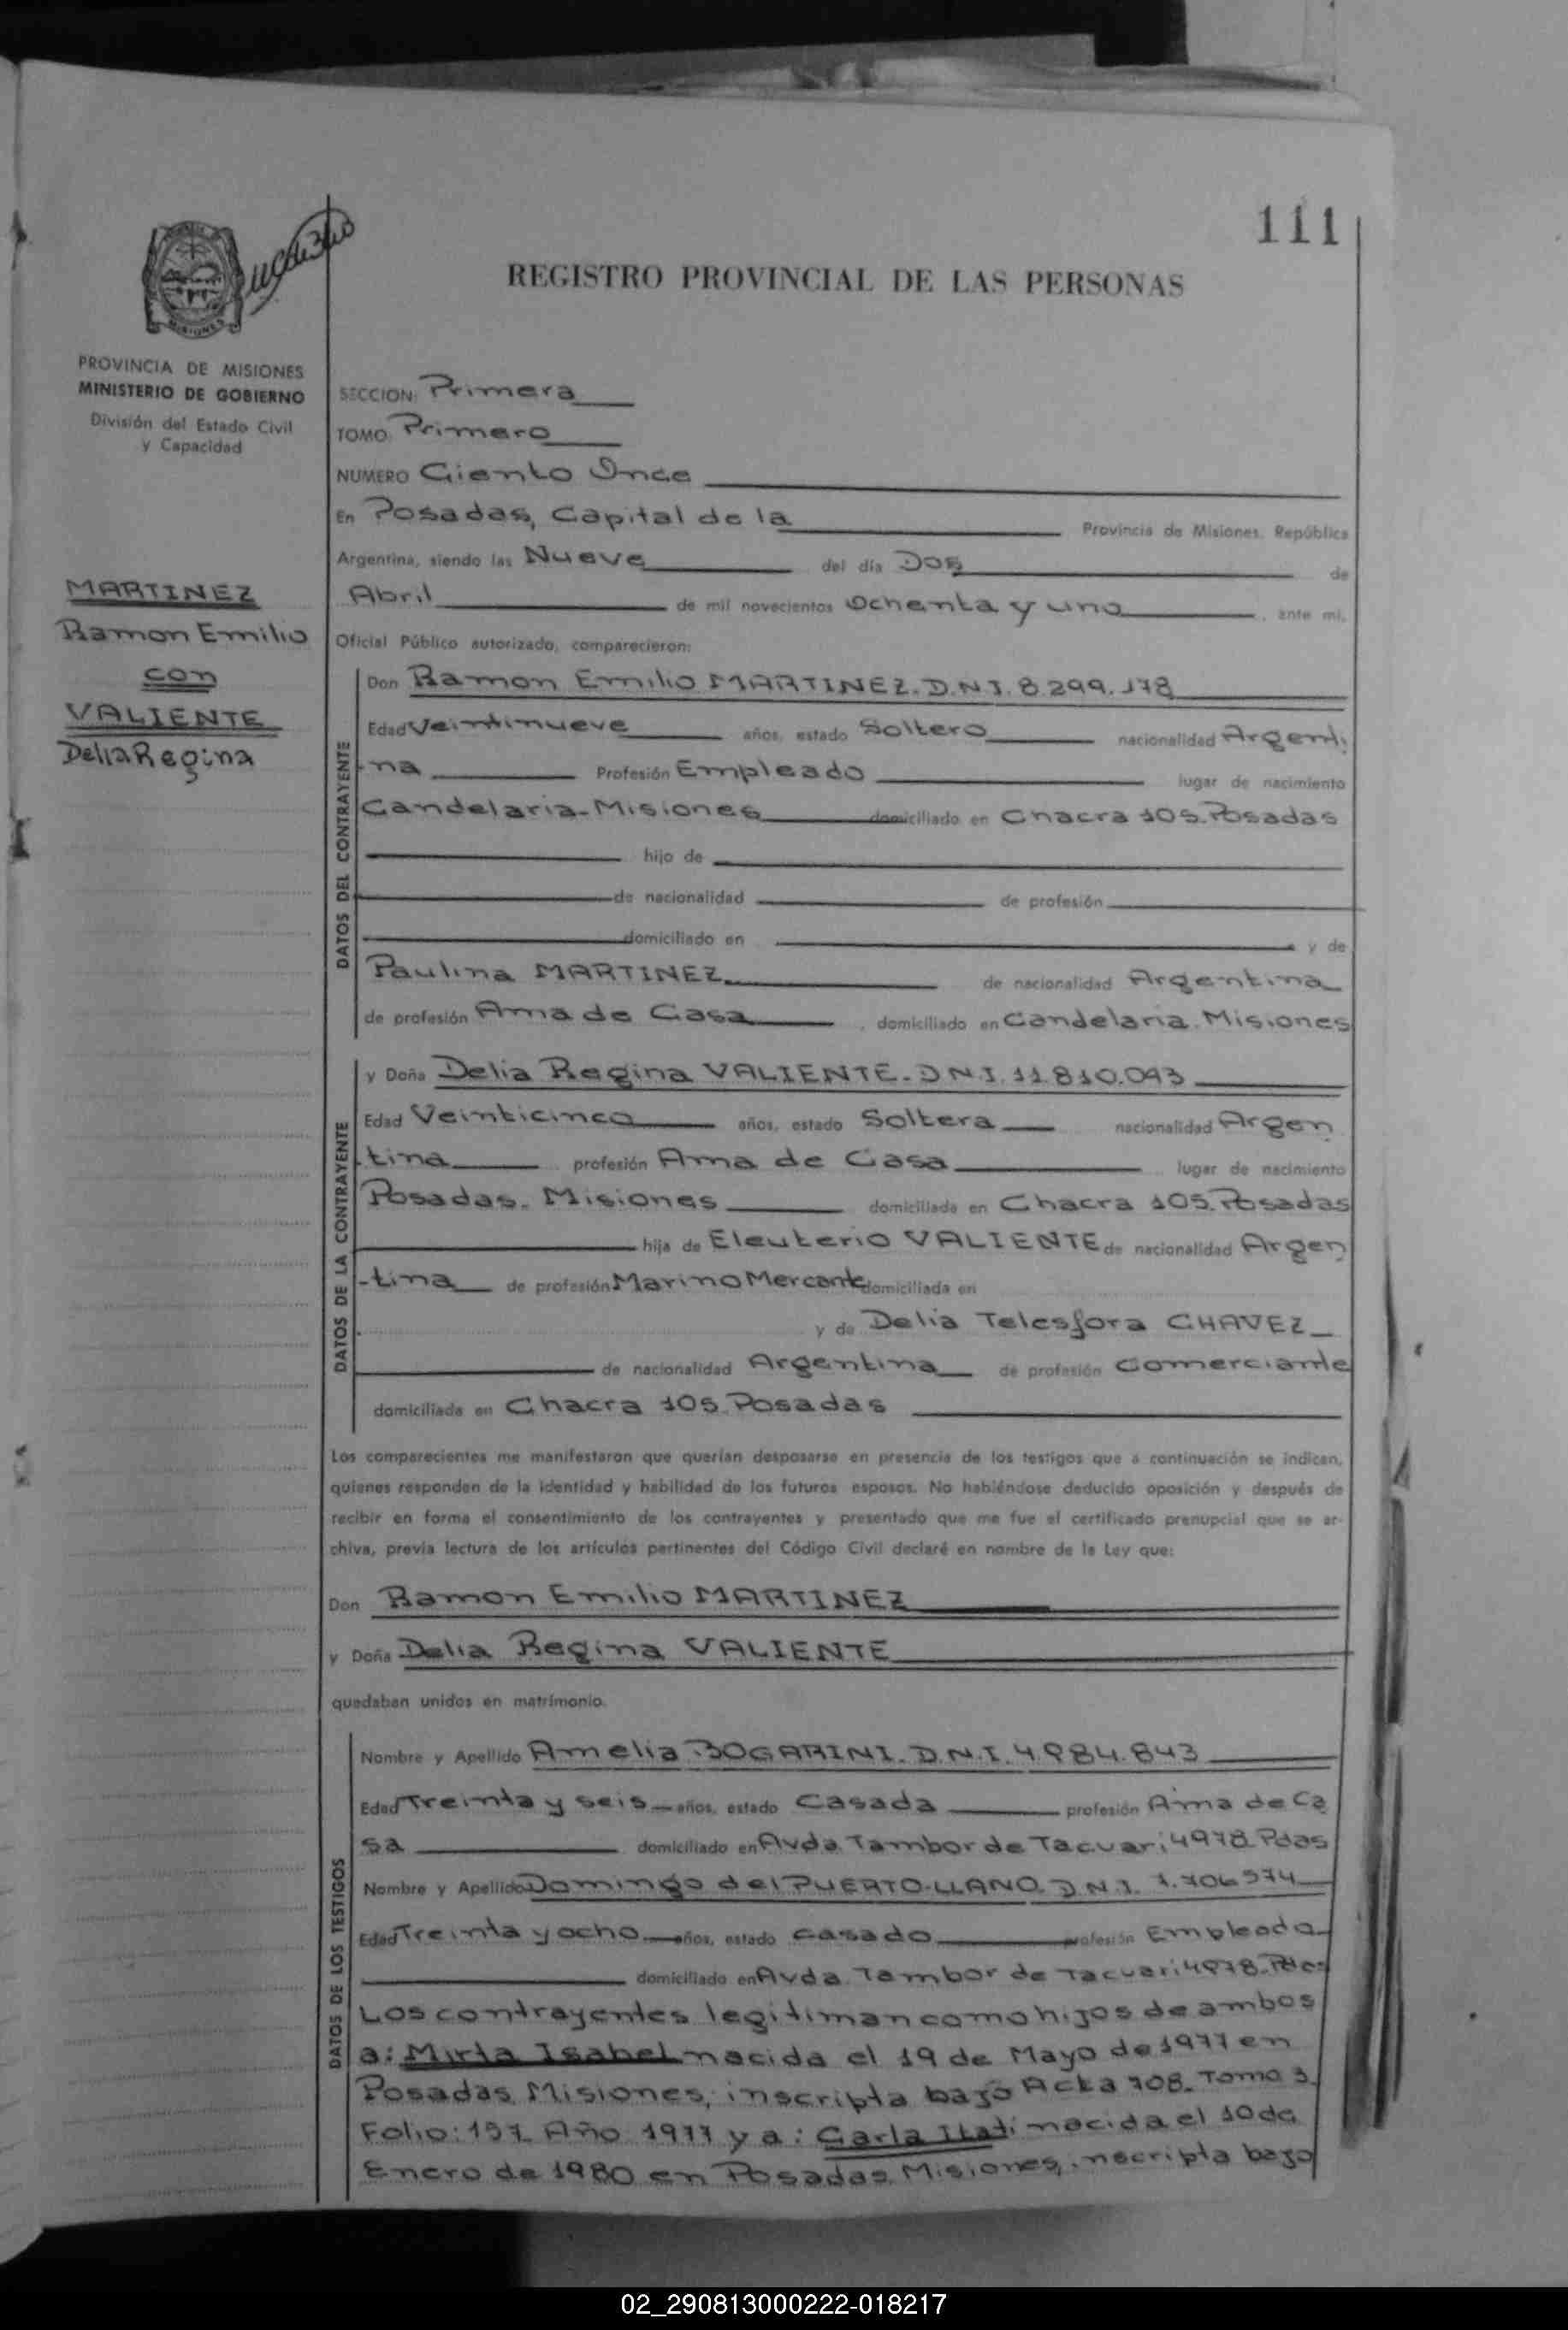 111
REGISTRO PROVINCIAL DE LAS PERSONAS
MISIONES
PROVINCIA DE MISIONES
MINISTERIO DE GOBIERNO
División del Estado Civil
y Capacidad
MARTINEZ
Ramon Emilio
con
VALIENTE
Delia Regina
SECCION: Primera
TOMO Primero
NUMERO Ciento Once
En Posadas, Capital de la Provincia de Misiones, República
Argentina, siendo las Nueve del día Dos de
Abril de mil novecientos Ochenta y uno, ante mi,
Oficial Público autorizado, comparecieron:
DATOS DEL CONTRAYENTE
Don Ramon Emilio MARTINEZ. D.N.I. 8.299.178
Edad Veintinueve años, estado Soltero nacionalidad Argenti
-na Profesión Empleado lugar de nacimiento
Candelaria-Misiones domiciliado en Chacra 105. Posadas
hijo de
de nacionalidad de profesión
domiciliado en y de
Paulina MARTINEZ de nacionalidad Argentina
de profesión Ama de Casa, domiciliado en Candelaria. Misiones
DATOS DE LA CONTRAYENTE
y Doña Delia Regina VALIENTE. D.N.I. 11.810.093
Edad Veinticinco años, estado Soltera nacionalidad Argen
-tina profesión Ama de Casa lugar de nacimiento
Posadas. Misiones domiciliada en Chacra 105. Posadas
hija de Eleuterio VALIENTE de nacionalidad Argen
-tina de profesión Marino Mercante domiciliada en
y de Delia Telesfora CHAVEZ
de nacionalidad Argentina de profesión Comerciante
domiciliada en Chacra 105. Posadas
Los comparecientes me manifestaron que querían desposarse en presencia de los testigos que a continuación se indican,
quienes responden de la identidad y habilidad de los futuros esposos. No habiéndose deducido oposición y después de
recibir en forma el consentimiento de los contrayentes y presentado que me fue el certificado prenupcial que se ar-
chiva, previa lectura de los artículos pertinentes del Código Civil declaré en nombre de la Ley que:
Don Ramon Emilio MARTINEZ
y Doña Delia Regina VALIENTE
quedaban unidos en matrimonio.
DATOS DE LOS TESTIGOS
Nombre y Apellido Amelia BOGARINI. D.N.I. 4.984.843
Edad Treinta y seis años, estado Casada profesión Ama de Ca
sa domiciliado en Avda. Tambor de Tacuari 4978. Pdas
Nombre y Apellido Domingo del PUERTO-LLANO. D.N.I. 7.706574
Edad Treinta y ocho años, estado Casado profesión Empleado
domiciliado en Avda. Tambor de Tacuari 4978. Pdas
Los contrayentes legitiman como hijos de ambos
a: Mirta Isabel nacida el 19 de Mayo de 1977 en
Posadas, Misiones, inscripta bajo Acta 708. Tomo 3.
Folio: 157. Año 1977 y a: Carla Itatí nacida el 10 de
Enero de 1980 en Posadas. Misiones, inscripta bajo
02_290813000222-018217